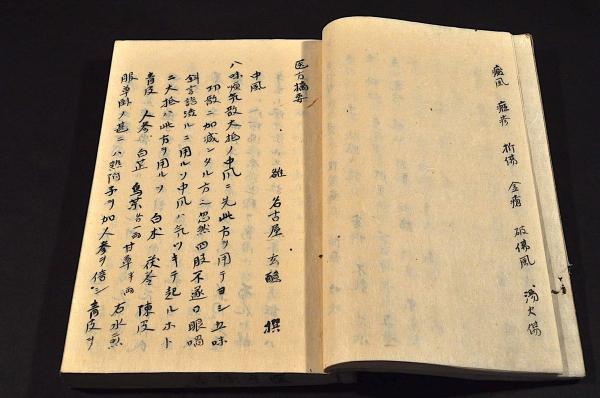 癜風 癮疹 折傷 金瘡 破傷風 湯火傷
医方摘要
雒 名古屋玄醫 撰
中風
八味順気散大抵ノ中風ニ先此方ヲ用テヨシ五味
切散ニ加減シタル方ニ忽然四肢不遂口眼喎
斜言語渋ルニ用ルソ中風ハ気ツキテ起ルホト
ニ大抵ハ此方ヲ用ルソ 白朮 茯苓 陳皮
青皮 人参 白芷 烏薬各一両 甘草半両 右水煎
服卒 大甚ニハ熟附子ヲ加人参ヲ倍シ青皮ヲ